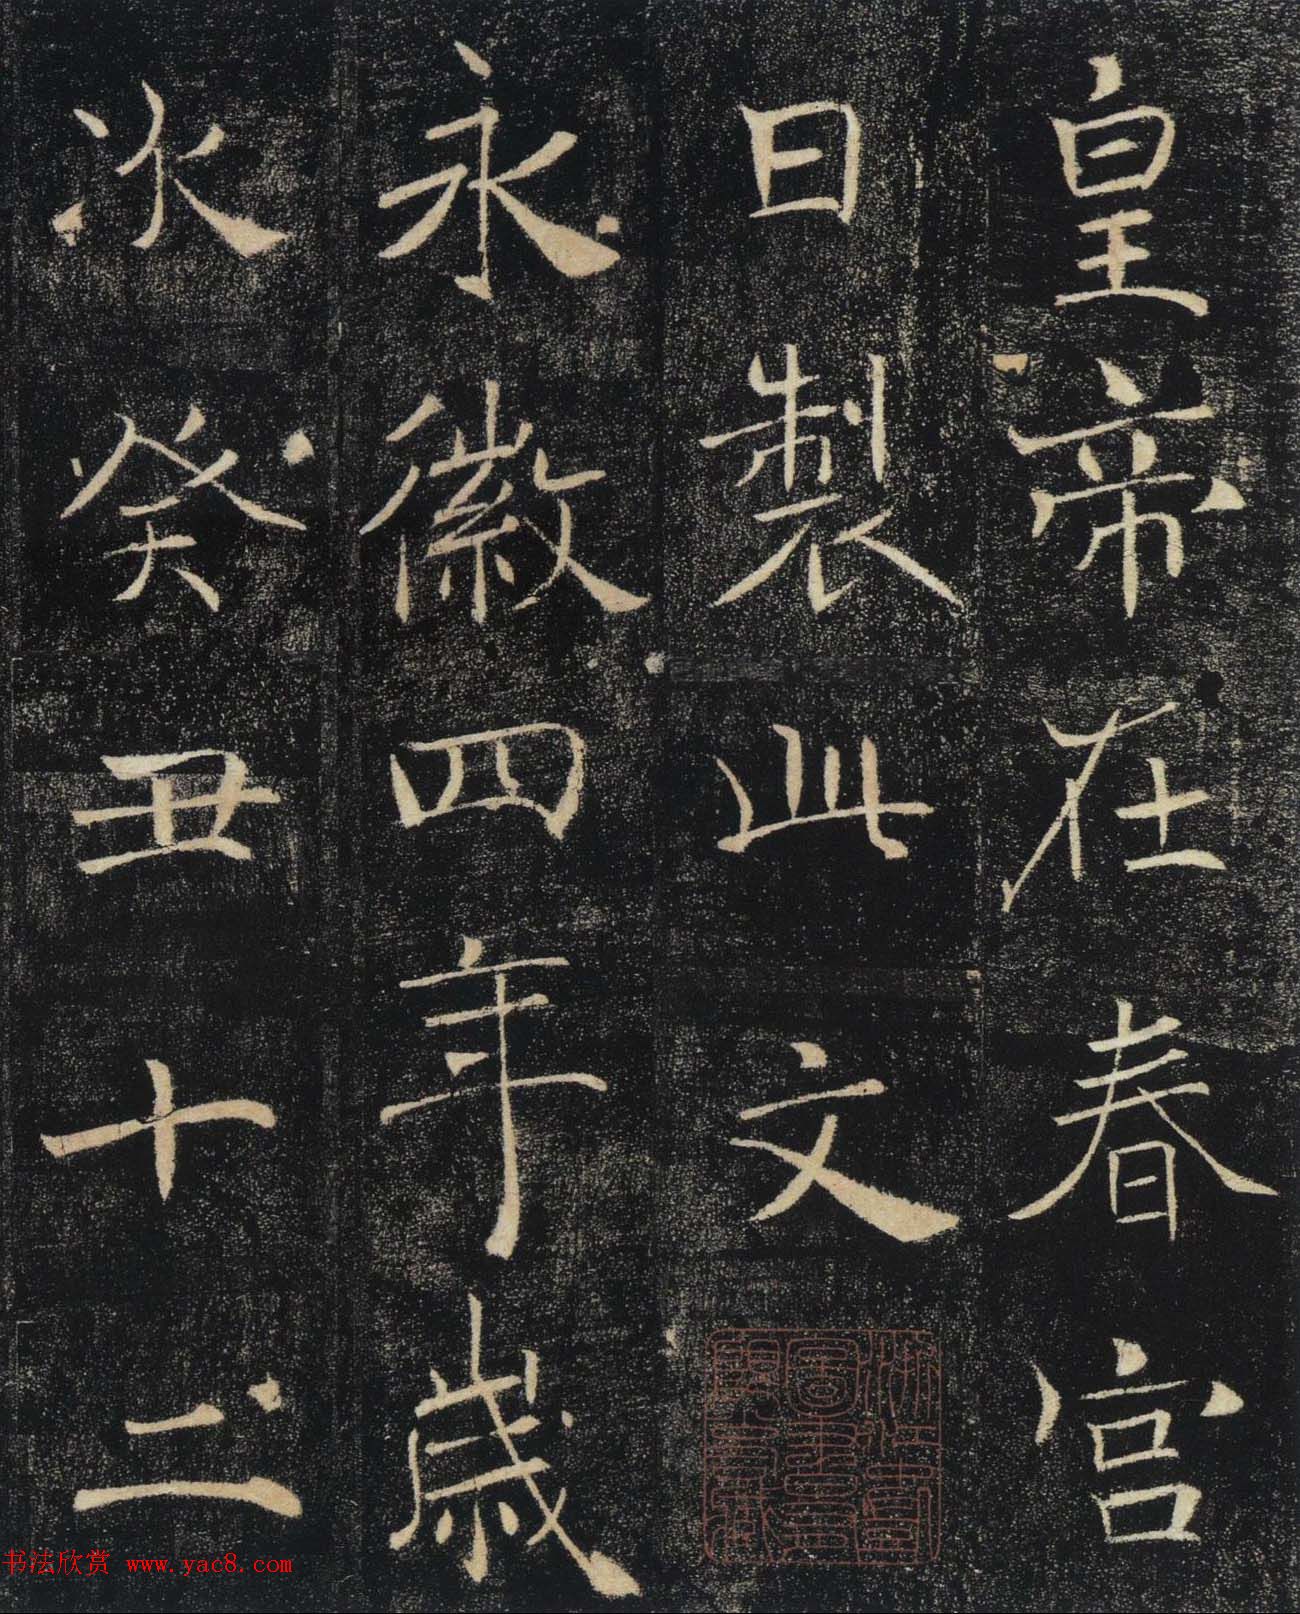 皇帝在春宮
日製此文
永徽四年歲
次癸丑十二
书法欣赏 www.yac8.com